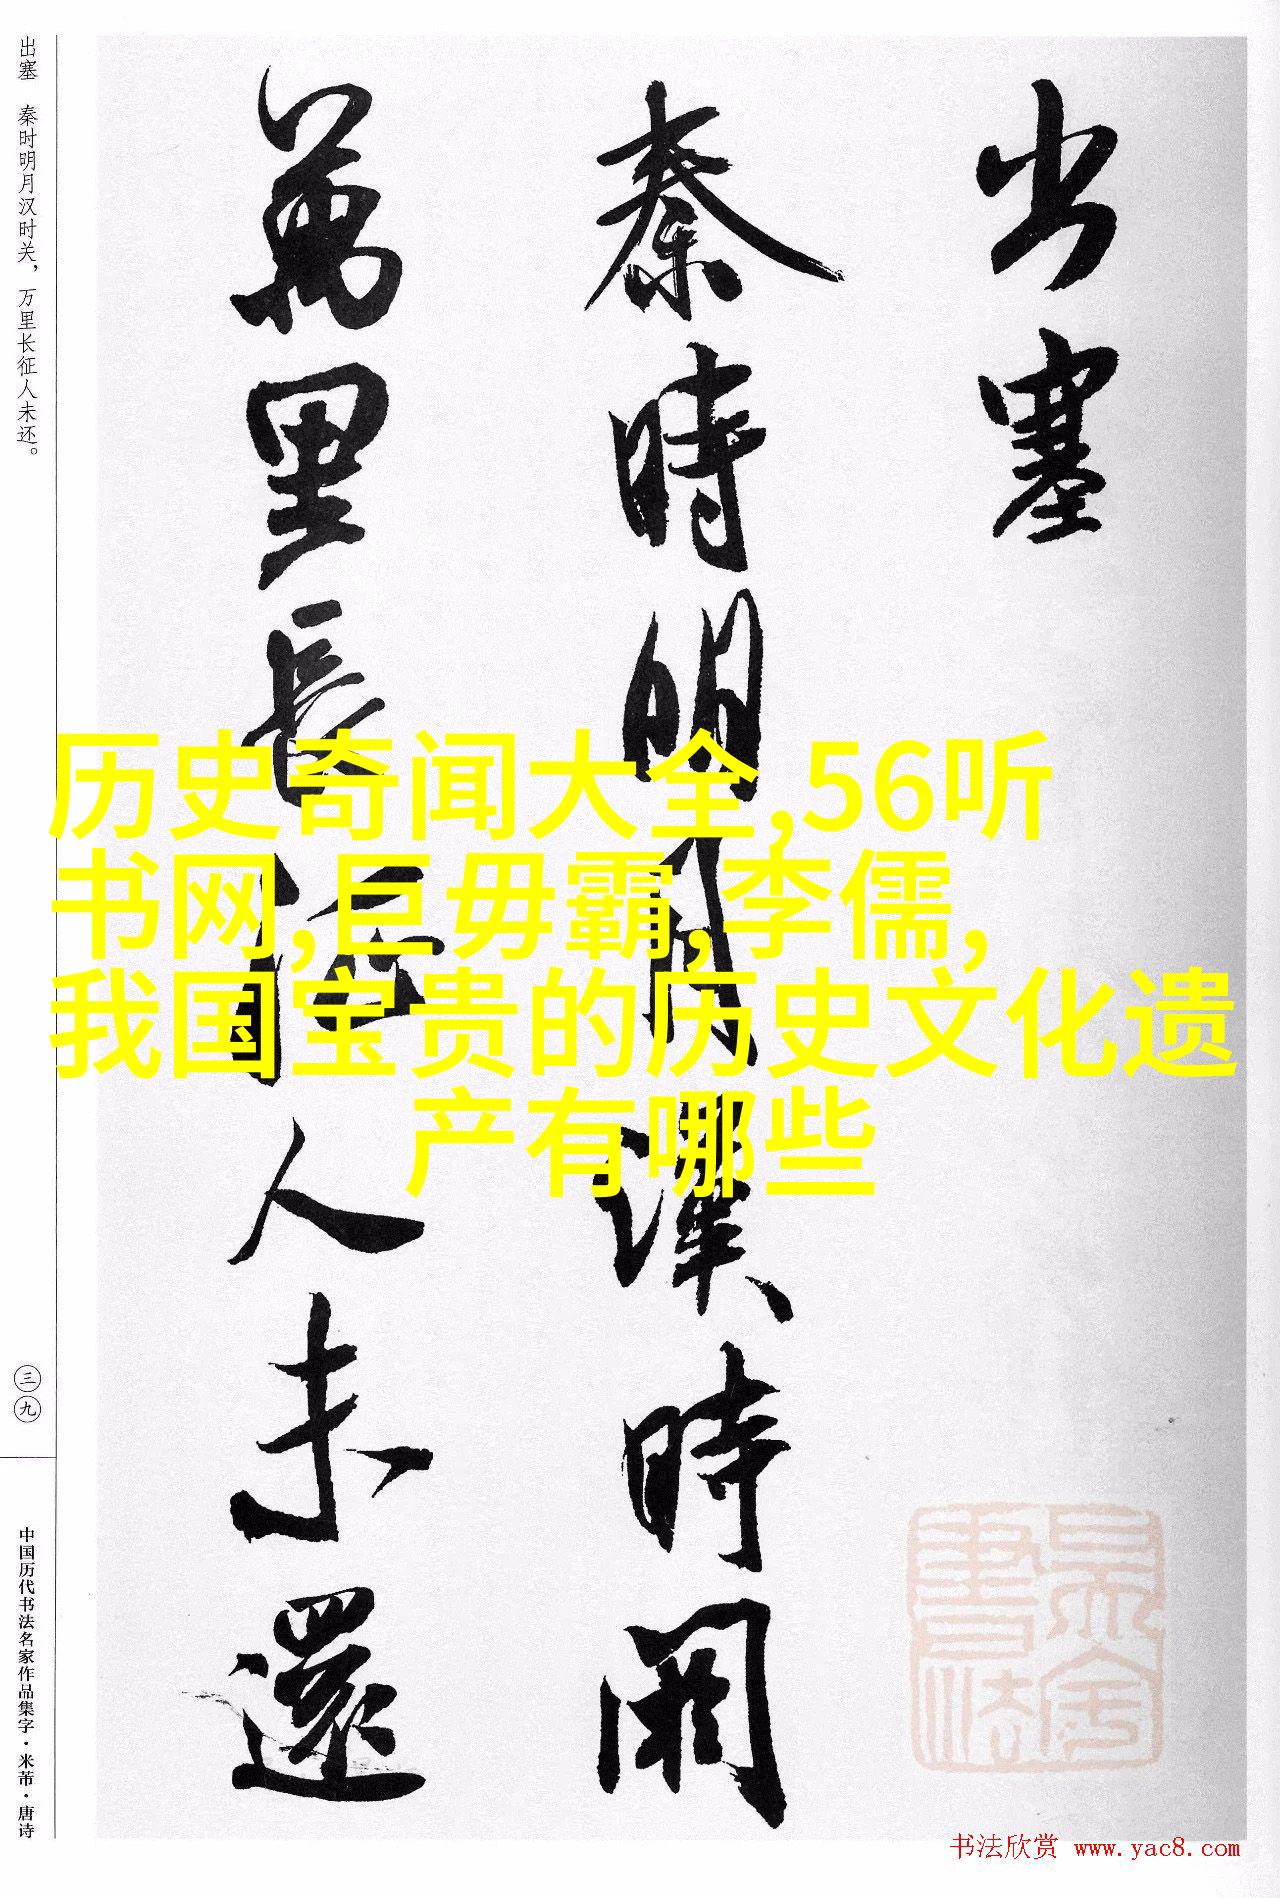 出塞
秦時明月漢時関
萬里長征人未還
出塞 秦时明月汉时关，万里长征人未还。
三九
中国历代书法名家作品集字·米芾·唐诗
历史奇闻大全,56听
书网,巨毋霸,李儒,
我国宝贵的历史文化遗
产有哪些
书法欣赏 www.yac8.com